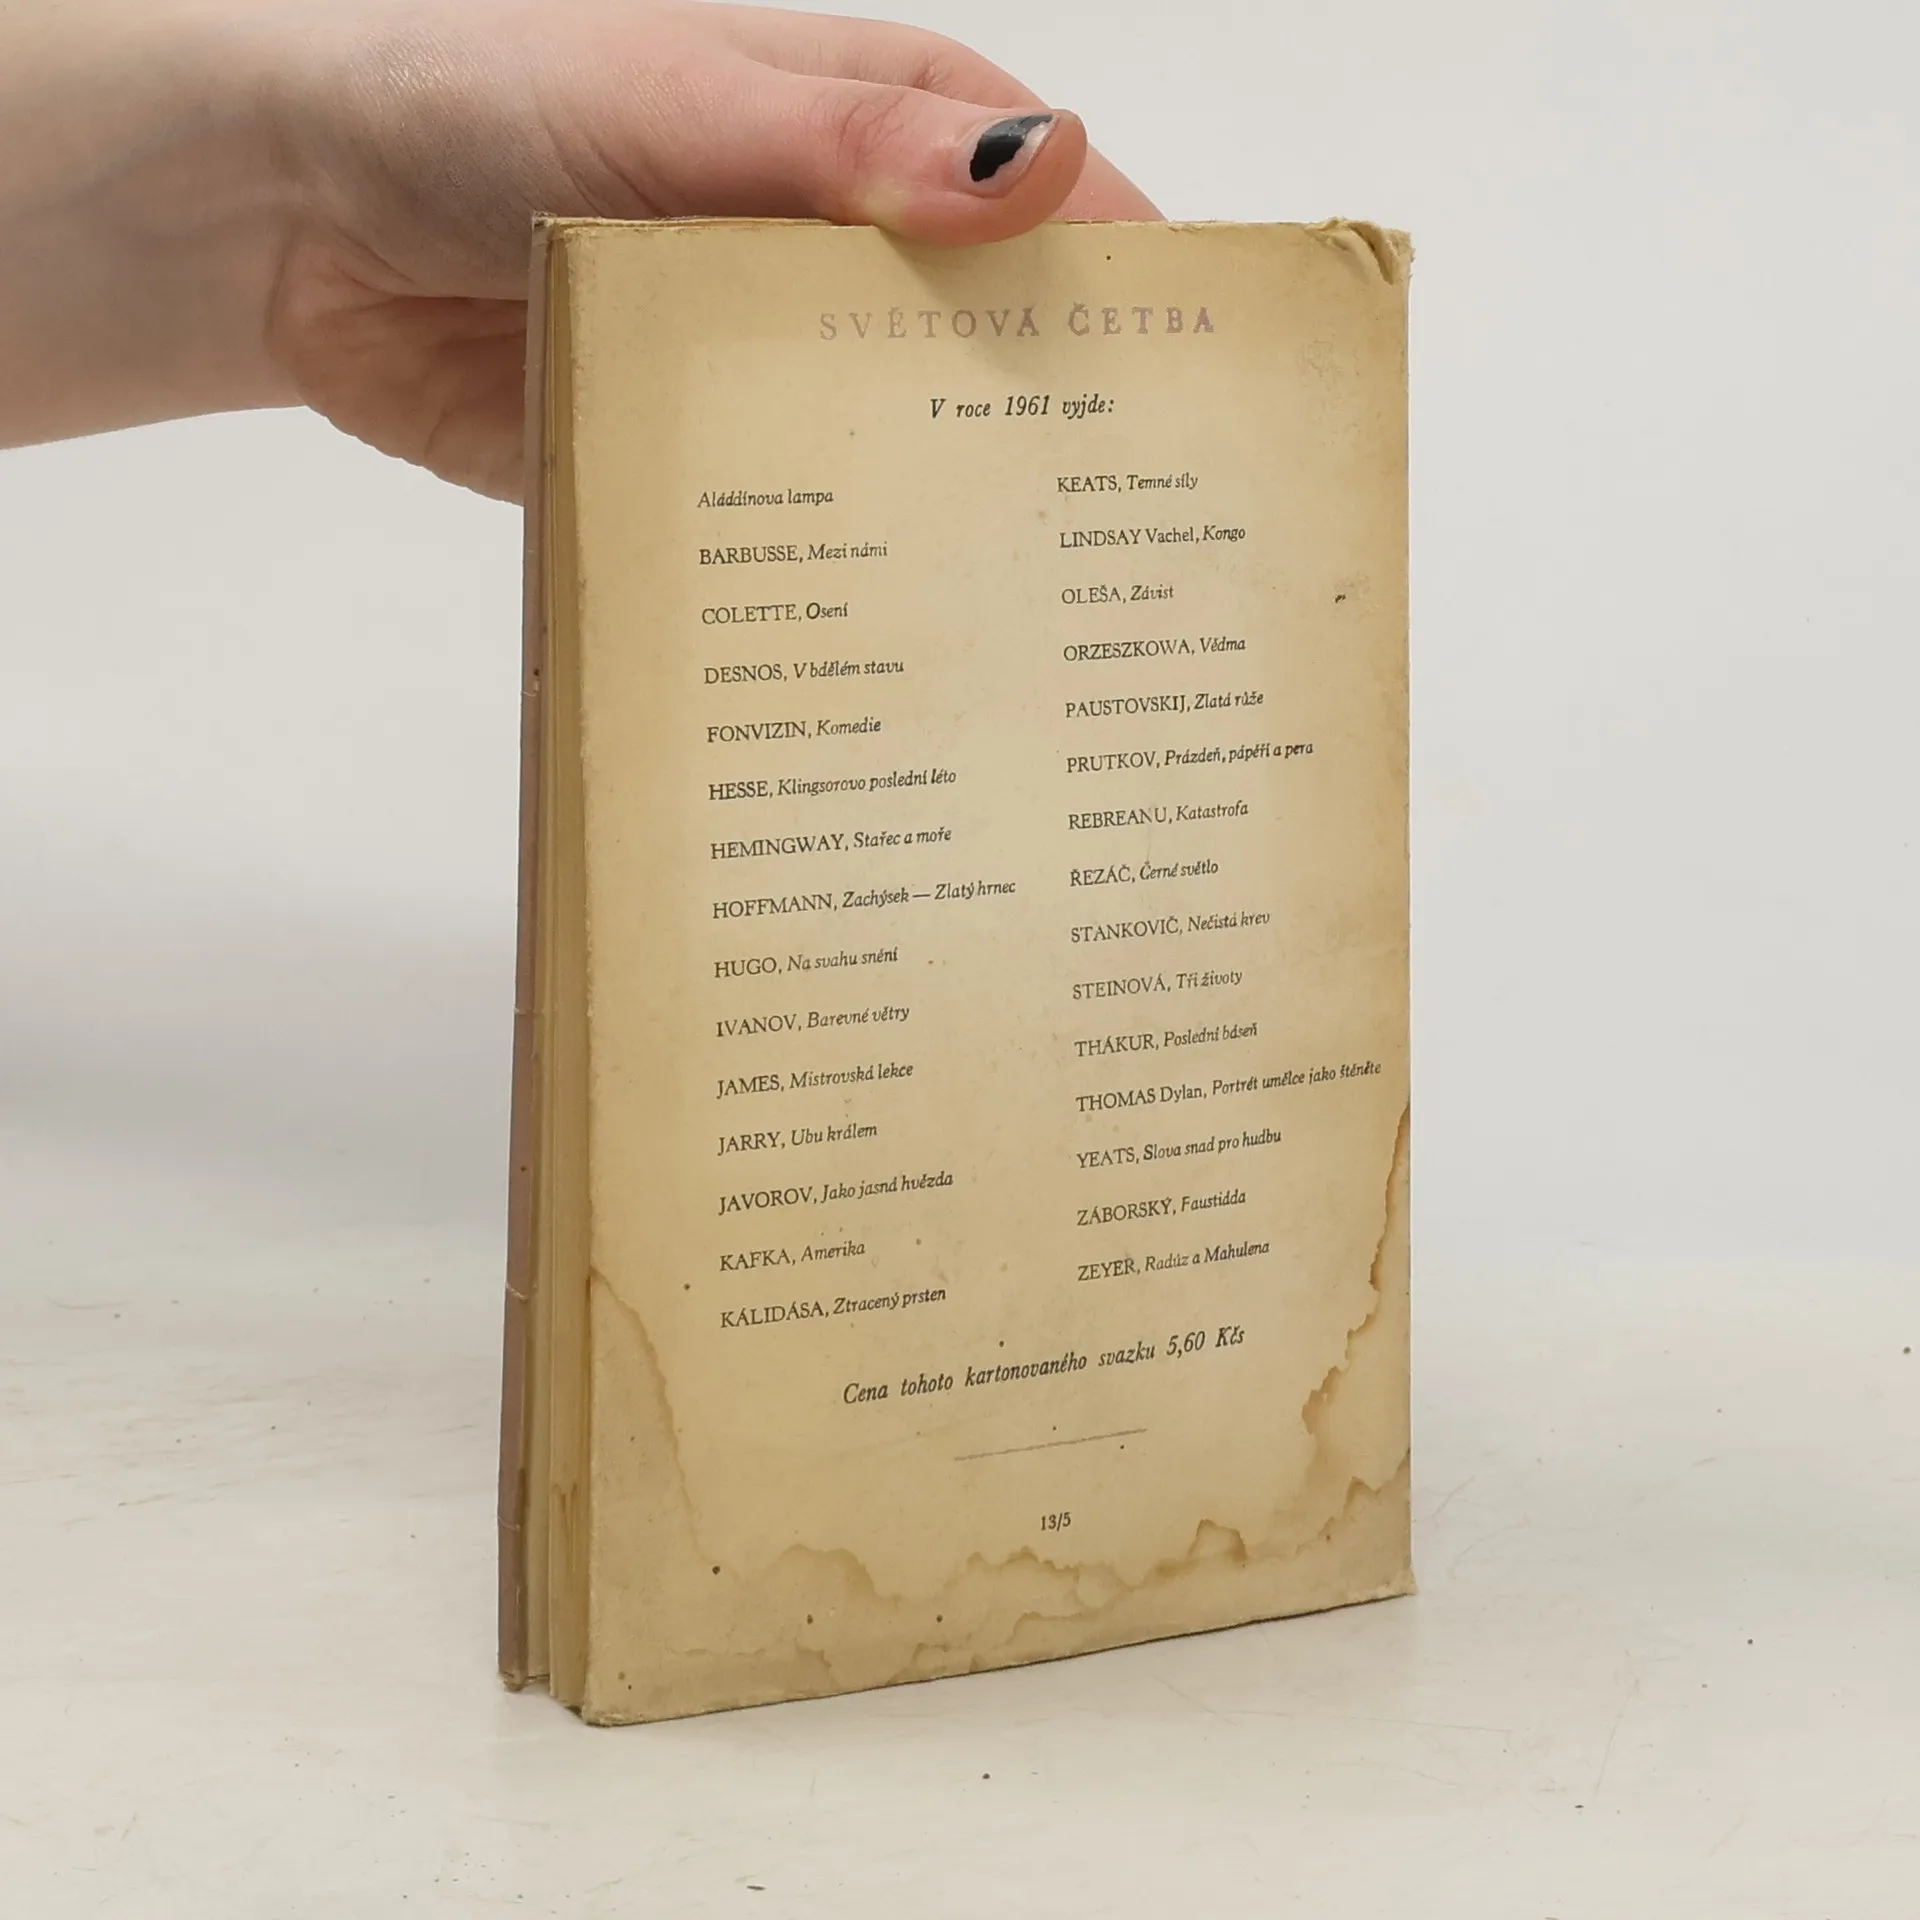 SVĚTOVÁ ČETBA
V roce 1961 vyjde:
Aláddínova lampa
BARBUSSE, Mezi námi
COLETTE, Osení
DESNOS, V bdělém stavu
FONVIZIN, Komedie
HESSE, Klingsorovo poslední léto
HEMINGWAY, Stařec a moře
HOFFMANN, Zachýsek — Zlatý hrnec
HUGO, Na svahu snění
IVANOV, Barevné větry
JAMES, Mistrovská lekce
JARRY, Ubu králem
JAVOROV, Jako jasná hvězda
KAFKA, Amerika
KÁLIDÁSA, Ztracený prsten
KEATS, Temné síly
LINDSAY Vachel, Kongo
OLEŠA, Závist
ORZESZKOWA, Vědma
PAUSTOVSKIJ, Zlatá růže
PRUTKOV, Prázdeň, pápěří a pera
REBREANU, Katastrofa
ŘEZÁČ, Černé světlo
STANKOVIČ, Nečistá krev
STEINOVÁ, Tři životy
THÁKUR, Poslední báseň
THOMAS Dylan, Portrét umělce jako štěněte
YEATS, Slova snad pro hudbu
ZÁBORSKÝ, Faustiáda
ZEYER, Radúz a Mahulena
Cena tohoto kartonovaného svazku 5,60 Kčs
13/5